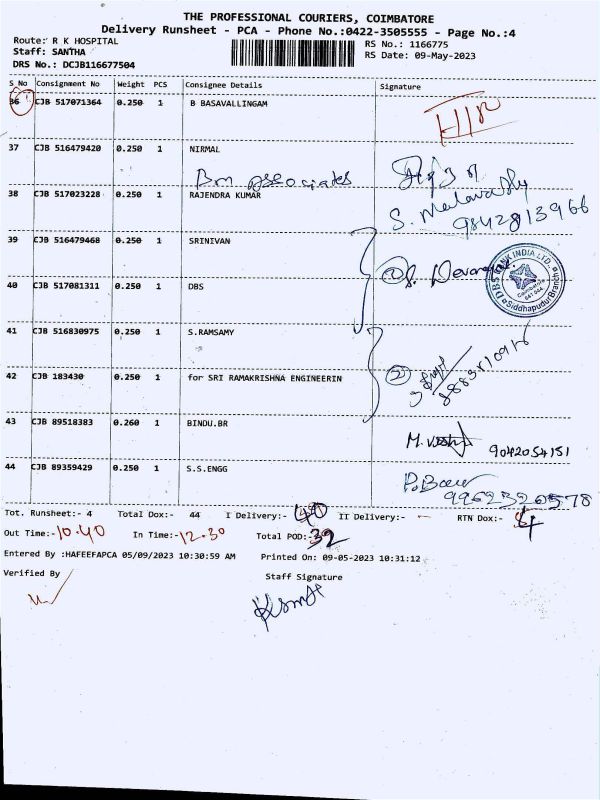 THE PROFESSIONAL COURIERS, COIMBATORE
Delivery Runsheet - PCA - Phone No.:0422-3505555 - Page No.:4
Route: R K HOSPITAL RS No.: 1166775
Staff: SANTHA RS Date: 09-May-2023
DRS No.: DCJB116677504
S No Consignment No Weight PCS Consignee Details Signature
36 CJB 517071364 0.250 1 B BASAVALLINGAM
37 CJB 516479420 0.250 1 NIRMAL
Bm associates
38 CJB 517023228 0.250 1 RAJENDRA KUMAR
9842813966
39 CJB 516479468 0.250 1 SRINIVAN
DBS BANK INDIA LTD. Coimbatore Siddhapudur Branch
40 CJB 517081311 0.250 1 DBS
41 CJB 516830975 0.250 1 S.RAMSAMY
42 CJB 183430 0.250 1 for SRI RAMAKRISHNA ENGINEERIN
43 CJB 89518383 0.260 1 BINDU.BR
9042054151
44 CJB 89359429 0.250 1 S.S.ENGG
9962320578
Tot. Runsheet:- 4 Total Dox:- 44 I Delivery:- 40 II Delivery:- - RTN Dox:- 4
Out Time:- 10.40 In Time:- 12.30 Total POD:- 32
Entered By :HAFEEFAPCA 05/09/2023 10:30:59 AM Printed On: 09-05-2023 10:31:12
Verified By Staff Signature